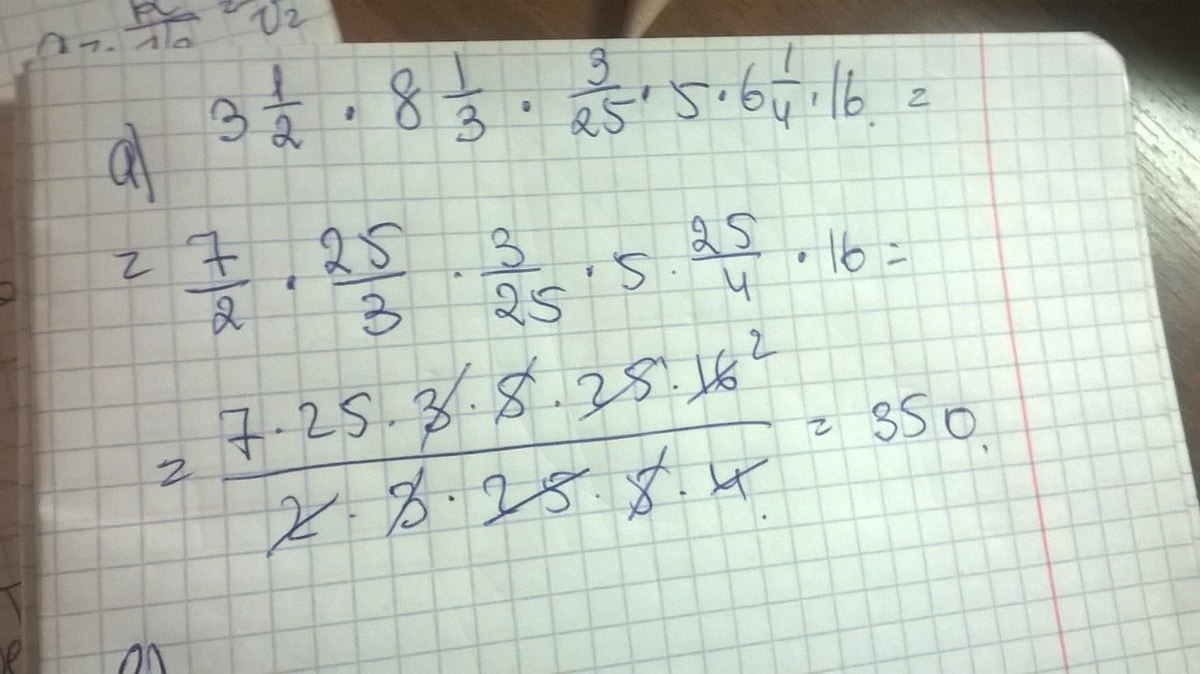 а) 3 1/2 · 8 1/3 · 3/25 · 5 · 6 1/4 · 16 =
= 7/2 · 25/3 · 3/25 · 5 · 25/4 · 16 =
= (7 · 25 · 3 · 5 · 25 · 16²)/(2 · 3 · 25 · 5 · 4) = 350.